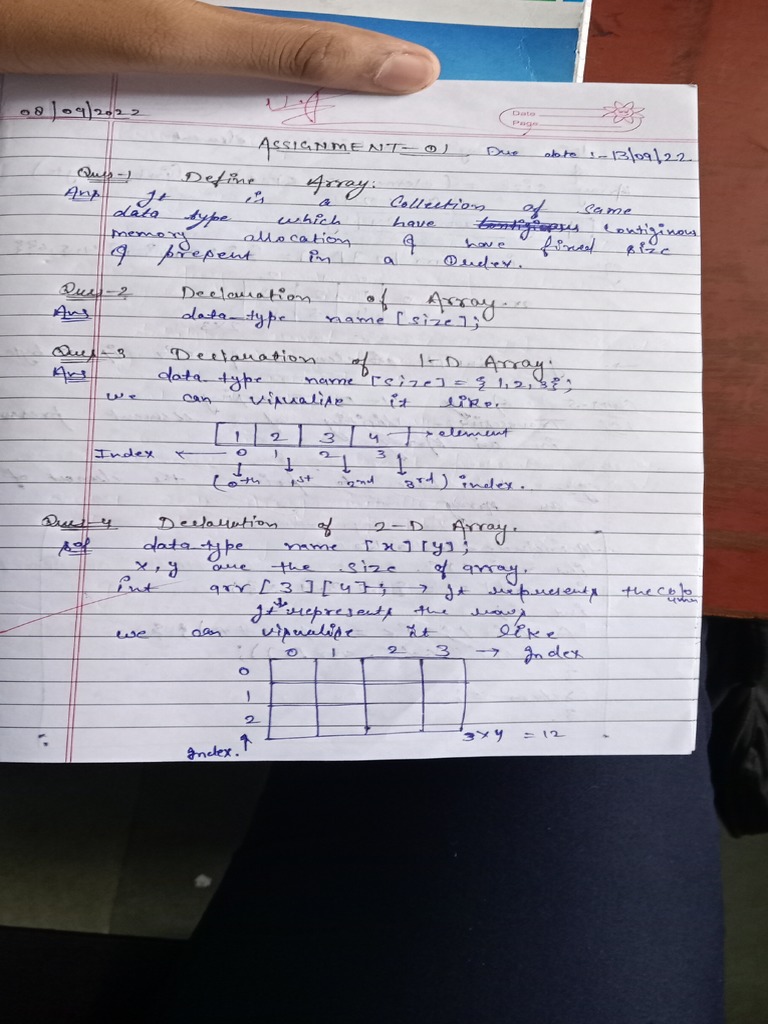 08/09/2022
Date
Page
ASSIGNMENT-01 Due date :- 13/09/22
Ques-1 Define Array.
Ans It is a Collection of same
data type which have contiginous
memory allocation & have fixed size
& present in a Index.
Ques-2 Declaration of Array.
Ans data-type name [size];
Ques-3 Declaration of 1-D Array.
Ans data-type name [size] = {1,2,3};
we can visualise it like.
1 2 3 4 → element
Index ← 0 1 2 3
(0th 1st 2nd 3rd) index.
Ques-4 Declaration of 2-D Array.
data-type name [x][y];
x, y are the size of array.
int arr [3][4]; → It represents the column
It represents the rows
we can visualise it like
0 1 2 3 → Index
0
1
2
Index. ↑ 3×4 = 12